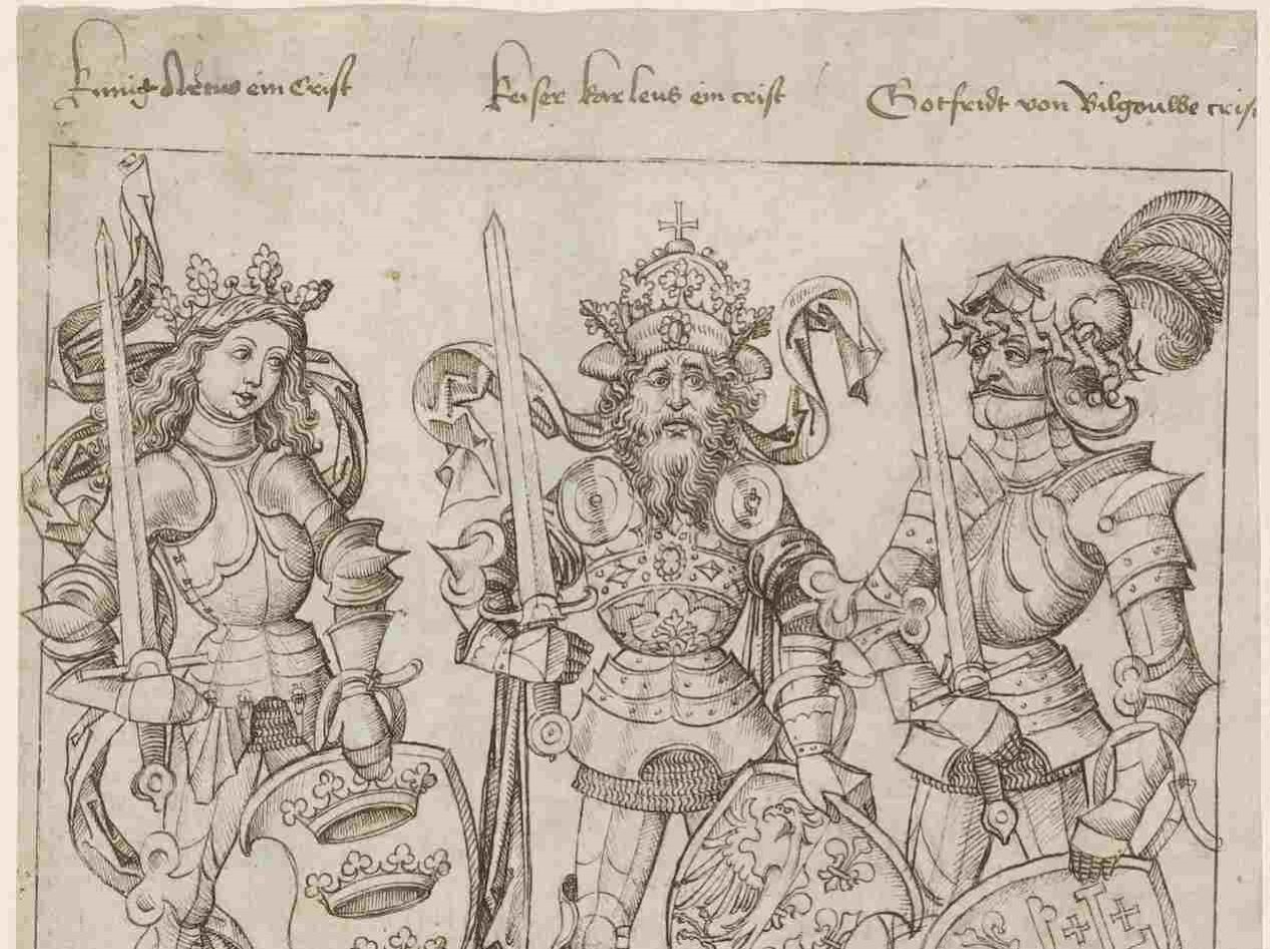 Kunig Artus ein Crist
keiser karleus ein crist
Gotfridt von Bilgoulbe cris